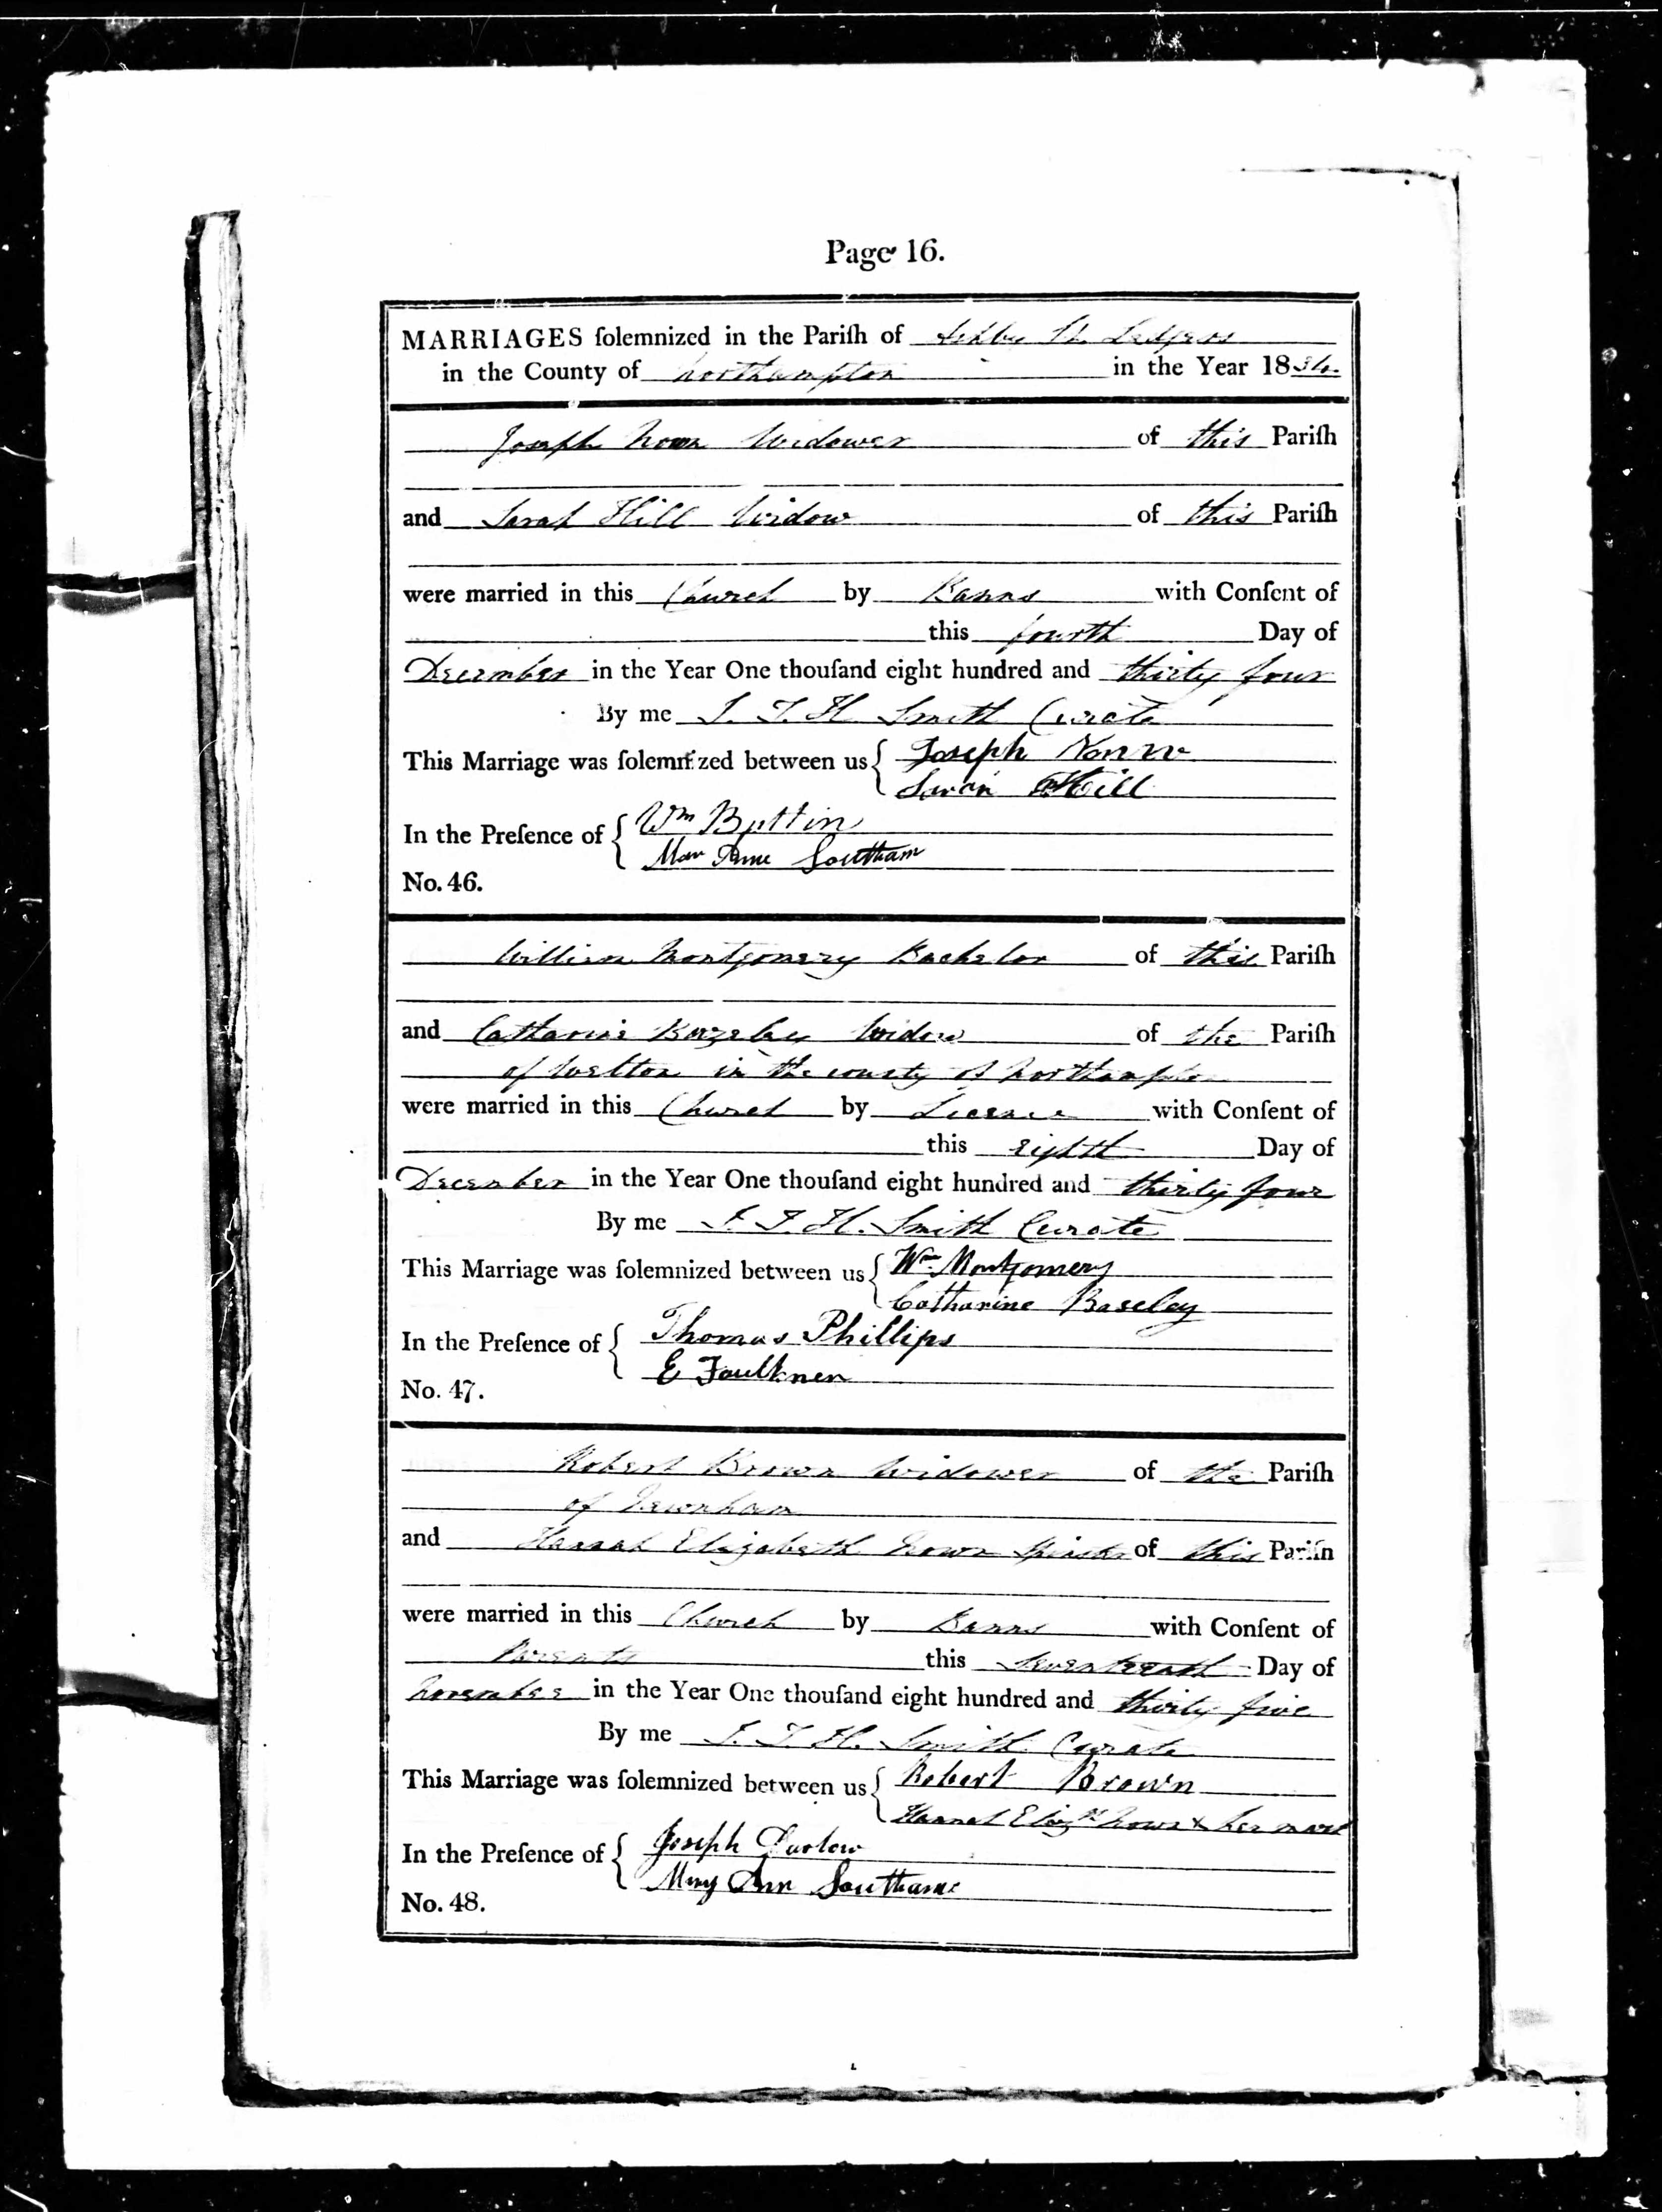 Page 16.
MARRIAGES ſolemnized in the Pariſh of Ashby St. Ledgers
in the County of Northampton in the Year 1834.
Joseph Nown Widower of this Pariſh
and Sarah Hill Widow of this Pariſh
were married in this Church by Banns with Conſent of
this fourth Day of
December in the Year One thouſand eight hundred and thirty four
By me J. T. H. Smith Curate
This Marriage was ſolemnized between us { Joseph
Sarah Hill
In the Preſence of { Wm Buttin
Mary Anne Southam
No. 46.
William Montgomery Bachelor of this Pariſh
and Catharine Bazeley Widow of the Pariſh
of Welton in the county of Northampton
were married in this Church by Licence with Conſent of
this eighth Day of
December in the Year One thouſand eight hundred and thirty four
By me J. T. H. Smith Curate
This Marriage was ſolemnized between us { Wm Montgomery
Catharine Baseley
In the Preſence of { Thomas Phillips
E Faulkner
No. 47.
Robert Brown Widower of the Pariſh
of
and Hannah Elizabeth Nown Spinster of this Pariſh
were married in this Church by Banns with Conſent of
Parents this Seventeenth Day of
November in the Year One thouſand eight hundred and thirty five
By me J. T. H. Smith Curate
This Marriage was ſolemnized between us { Robert Brown
Hannah Elizth Nown x her mark
In the Preſence of { Joseph Darlow
Mary Ann Southam
No. 48.